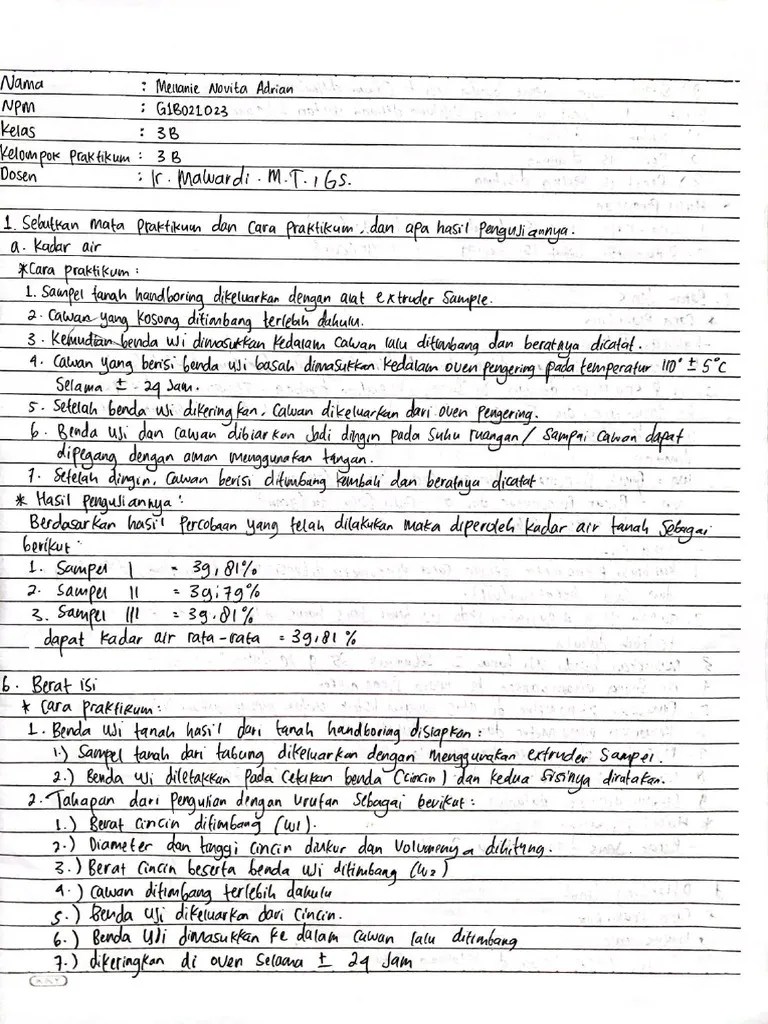 Nama : Mellanie Novita Adrian
NPM : G1B021023
Kelas : 3B
Kelompok praktikum : 3 B
Dosen : Ir. Mawardi. M.T., IGS.
1. Sebutkan mata praktikum dan Cara praktikum, dan apa hasil pengujiannya.
a. Kadar air
*Cara praktikum :
1. Sampel tanah handboring dikeluarkan dengan alat extruder Sample.
2. Cawan yang kosong ditimbang terlebih dahulu.
3. Kemudian benda uji dimasukkan kedalam cawan lalu ditimbang dan beratnya dicatat.
4. Cawan yang berisi benda uji basah dimasukkan kedalam oven pengering pada temperatur 110° ± 5°C
Selama ± 24 Jam.
5. Setelah benda uji dikeringkan, Cawan dikeluarkan dari oven pengering.
6. Benda uji dan cawan dibiarkan Jadi dingin pada suhu ruangan / Sampai cawan dapat
dipegang dengan aman menggunakan tangan.
7. Setelah dingin, Cawan berisi ditimbang kembali dan beratnya dicatat
* Hasil pengujiannya :
Berdasarkan hasil percobaan yang telah dilakukan maka diperoleh kadar air tanah sebagai
berikut :
1. Sampel I = 39,81%
2. Sampel II = 39,79%
3. Sampel III = 39,81%
dapat kadar air rata-rata = 39,81 %
6. Berat isi
* Cara praktikum :
1. Benda uji tanah hasil dari tanah handboring disiapkan :
1.) Sampel tanah dari tabung dikeluarkan dengan menggunakan extruder Sampel.
2.) Benda uji diletakkan pada cetakan benda (cincin) dan kedua sisinya diratakan.
2. Tahapan dari pengujian dengan urutan sebagai berikut :
1.) Berat cincin ditimbang (W1).
2.) Diameter dan tinggi cincin diukur dan Volumenya dihitung.
3.) Berat cincin beserta benda uji ditimbang (W2)
4.) Cawan ditimbang terlebih dahulu
5.) Benda uji dikeluarkan dari cincin.
6.) Benda uji dimasukkan ke dalam cawan lalu ditimbang
7.) dikeringkan di oven selama ± 24 Jam